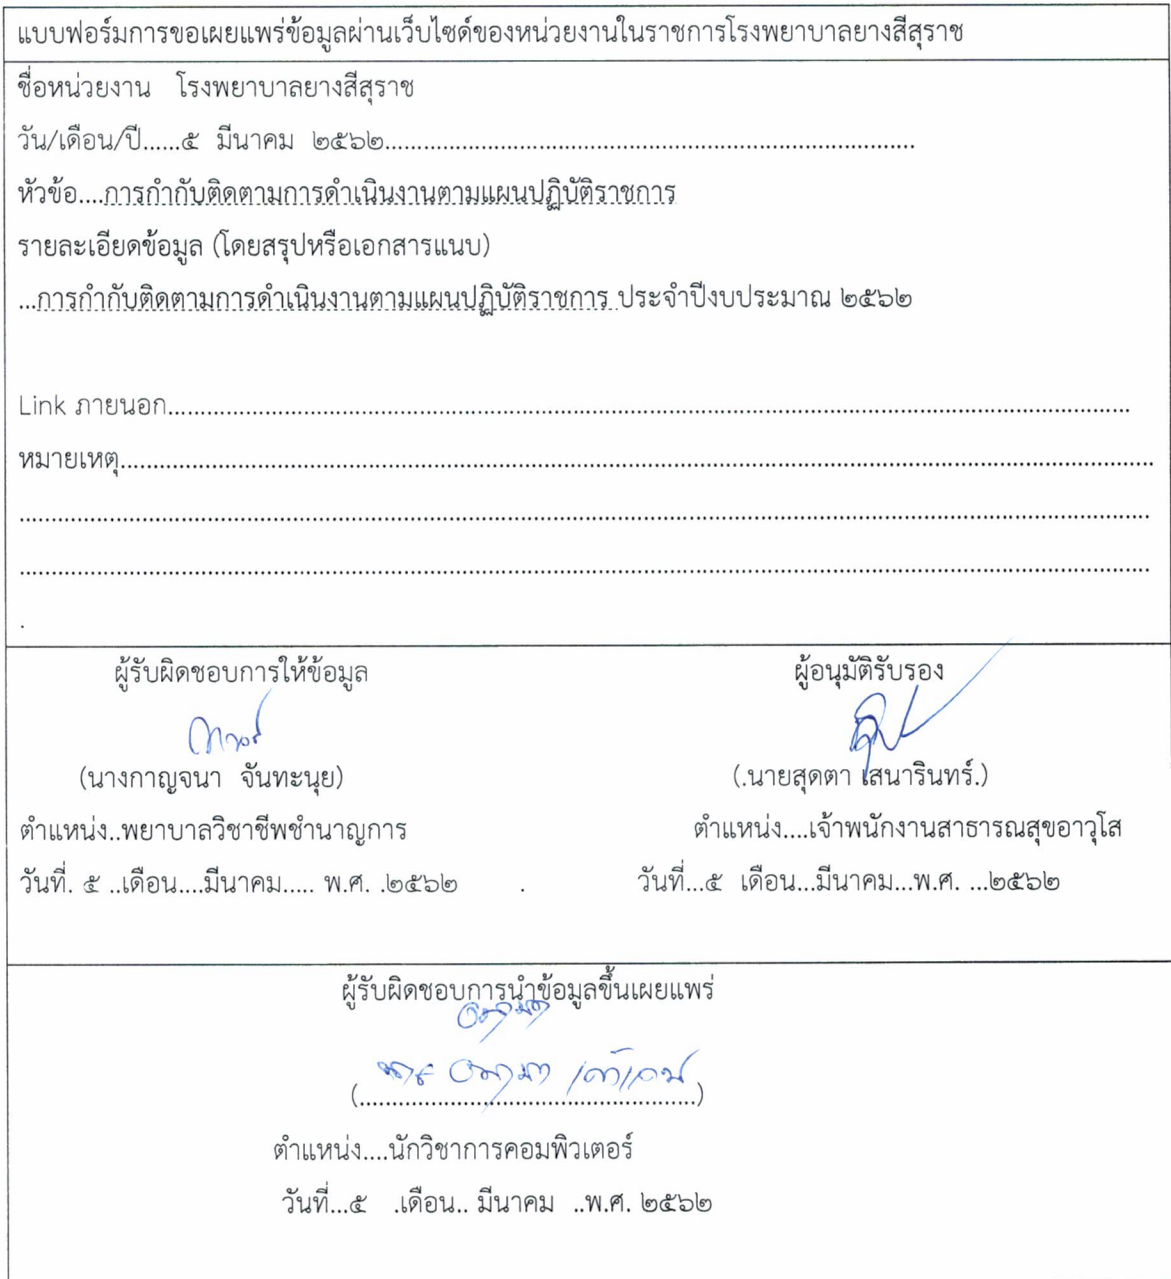 แบบฟอร์มการขอเผยแพร่ข้อมูลผ่านเว็บไซด์ของหน่วยงานในราชการโรงพยาบาลยางสีสุราช
ชื่อหน่วยงาน โรงพยาบาลยางสีสุราช
วัน/เดือน/ปี......๕ มีนาคม ๒๕๖๒..........................................................................................
หัวข้อ....การกำกับติดตามการดำเนินงานตามแผนปฏิบัติราชการ
รายละเอียดข้อมูล (โดยสรุปหรือเอกสารแนบ)
...การกำกับติดตามการดำเนินงานตามแผนปฏิบัติราชการ ประจำปีงบประมาณ ๒๕๖๒
Link ภายนอก..........................................................................................
หมายเหตุ..........................................................................................
..........................................................................................
..........................................................................................
.
ผู้รับผิดชอบการให้ข้อมูล ผู้อนุมัติรับรอง
(นางกาญจนา จันทะนุย) (.นายสุดตา เสนารินทร์.)
ตำแหน่ง..พยาบาลวิชาชีพชำนาญการ ตำแหน่ง....เจ้าพนักงานสาธารณสุขอาวุโส
วันที่. ๕ ..เดือน....มีนาคม..... พ.ศ. .๒๕๖๒ . วันที่...๕ เดือน...มีนาคม...พ.ศ. ...๒๕๖๒
ผู้รับผิดชอบการนำข้อมูลขึ้นเผยแพร่
(....................................................)
ตำแหน่ง....นักวิชาการคอมพิวเตอร์
วันที่...๕ .เดือน.. มีนาคม ..พ.ศ. ๒๕๖๒